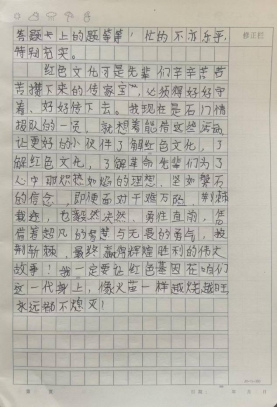 答题卡上的题等等！忙的不亦乐乎，
特别充实。
红色文化可是先辈们辛辛苦苦
苦攒下来的传家宝，必须得好好守
着、好好传下去。我现在是石门精
报队的一员，就想着能借这些活动
让更多的小伙伴了解红色文化，了
解红色文化，了解革命先辈们为了
心中那炽热如焰的理想，坚如磐石
的信念，即便面对千难万险，荆棘
载途，也毅然决然、勇往直前，凭
借着超凡的智慧与无畏的勇气，披
荆斩棘，最终赢得辉煌胜利的伟大
故事！我一定要让红色基因在咱们
这一代身上，像火苗一样越烧越旺
永远都不熄灭！
修正栏